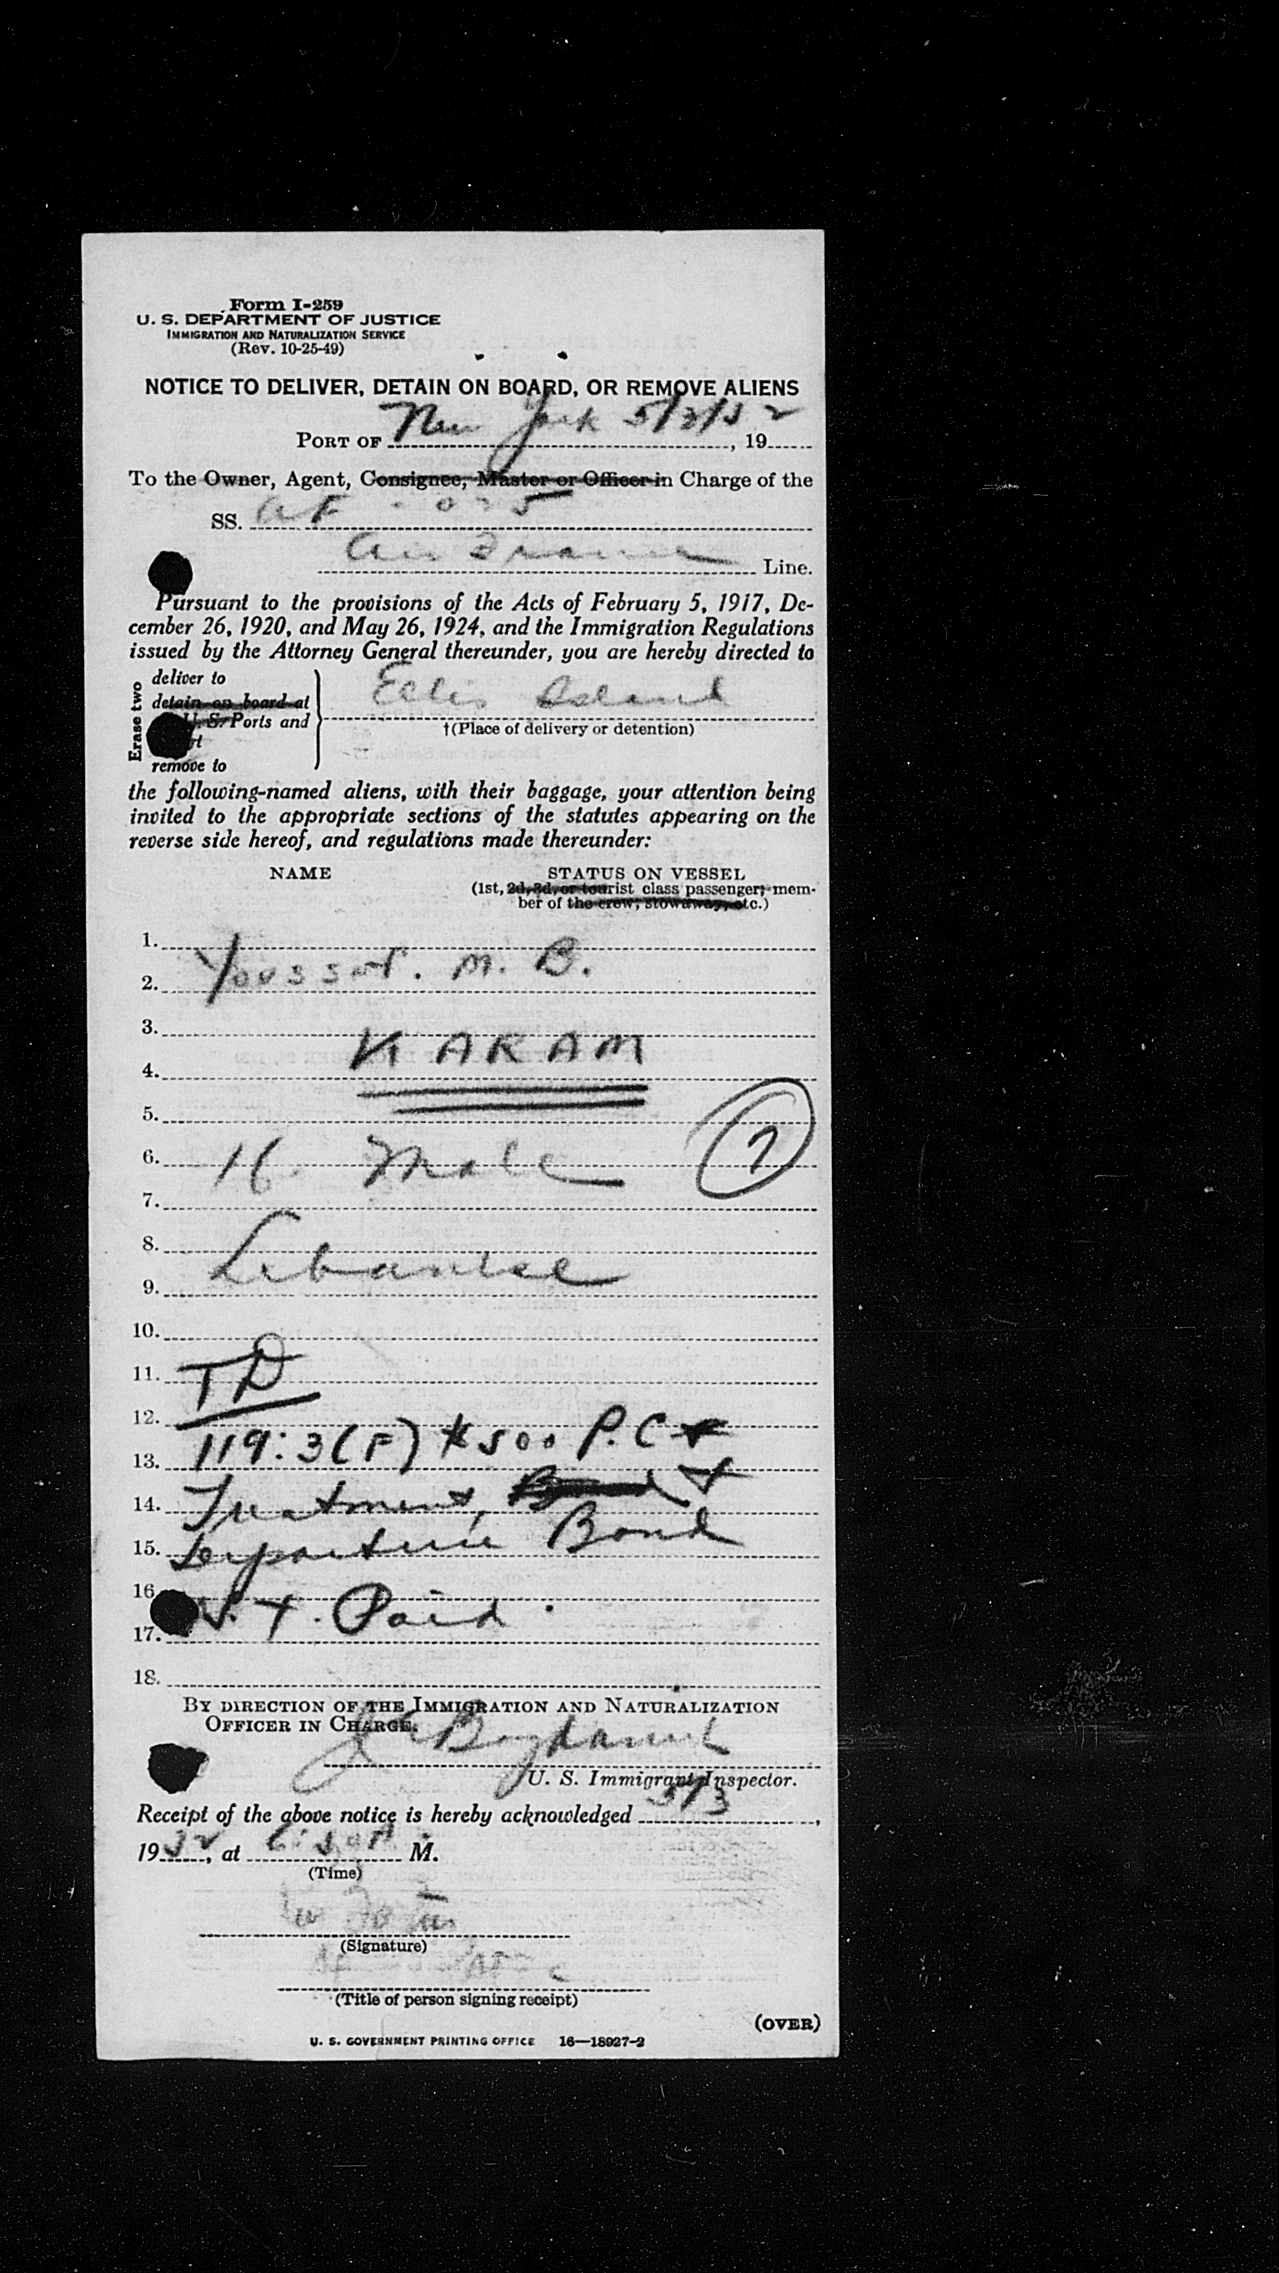 Form I-259
U. S. DEPARTMENT OF JUSTICE
IMMIGRATION AND NATURALIZATION SERVICE
(Rev. 10-25-49)
NOTICE TO DELIVER, DETAIN ON BOARD, OR REMOVE ALIENS
PORT OF New York 5/3/52, 19
To the Owner, Agent, Consignee, Master or Officer in Charge of the
SS. AF - 035
Air France Line.
Pursuant to the provisions of the Acts of February 5, 1917, De-
cember 26, 1920, and May 26, 1924, and the Immigration Regulations
issued by the Attorney General thereunder, you are hereby directed to
Erase two
deliver to
detain on board at
U. S. Ports and
remove to
Ellis Island
†(Place of delivery or detention)
the following-named aliens, with their baggage, your attention being
invited to the appropriate sections of the statutes appearing on the
reverse side hereof, and regulations made thereunder:
NAME STATUS ON VESSEL
(1st, 2d, 3d, or tourist class passenger; mem-
ber of the crew, stowaway, etc.)
1.
2. Youssef. M. B.
3.
4. KARAM
5.
6. 16. Male 7
7.
8.
9. Lebanese
10.
11. TD
12.
13. 119:3(F) $500 P.C +
14. Treatment, Bond +
15. Departure Bond
16
17. Paid.
18.
BY DIRECTION OF THE IMMIGRATION AND NATURALIZATION
OFFICER IN CHARGE.
U. S. Immigrant Inspector.
Receipt of the above notice is hereby acknowledged 5/3,
1952, at M.
(Time)
(Signature)
(Title of person signing receipt)
(OVER)
U. S. GOVERNMENT PRINTING OFFICE 16—18927-2